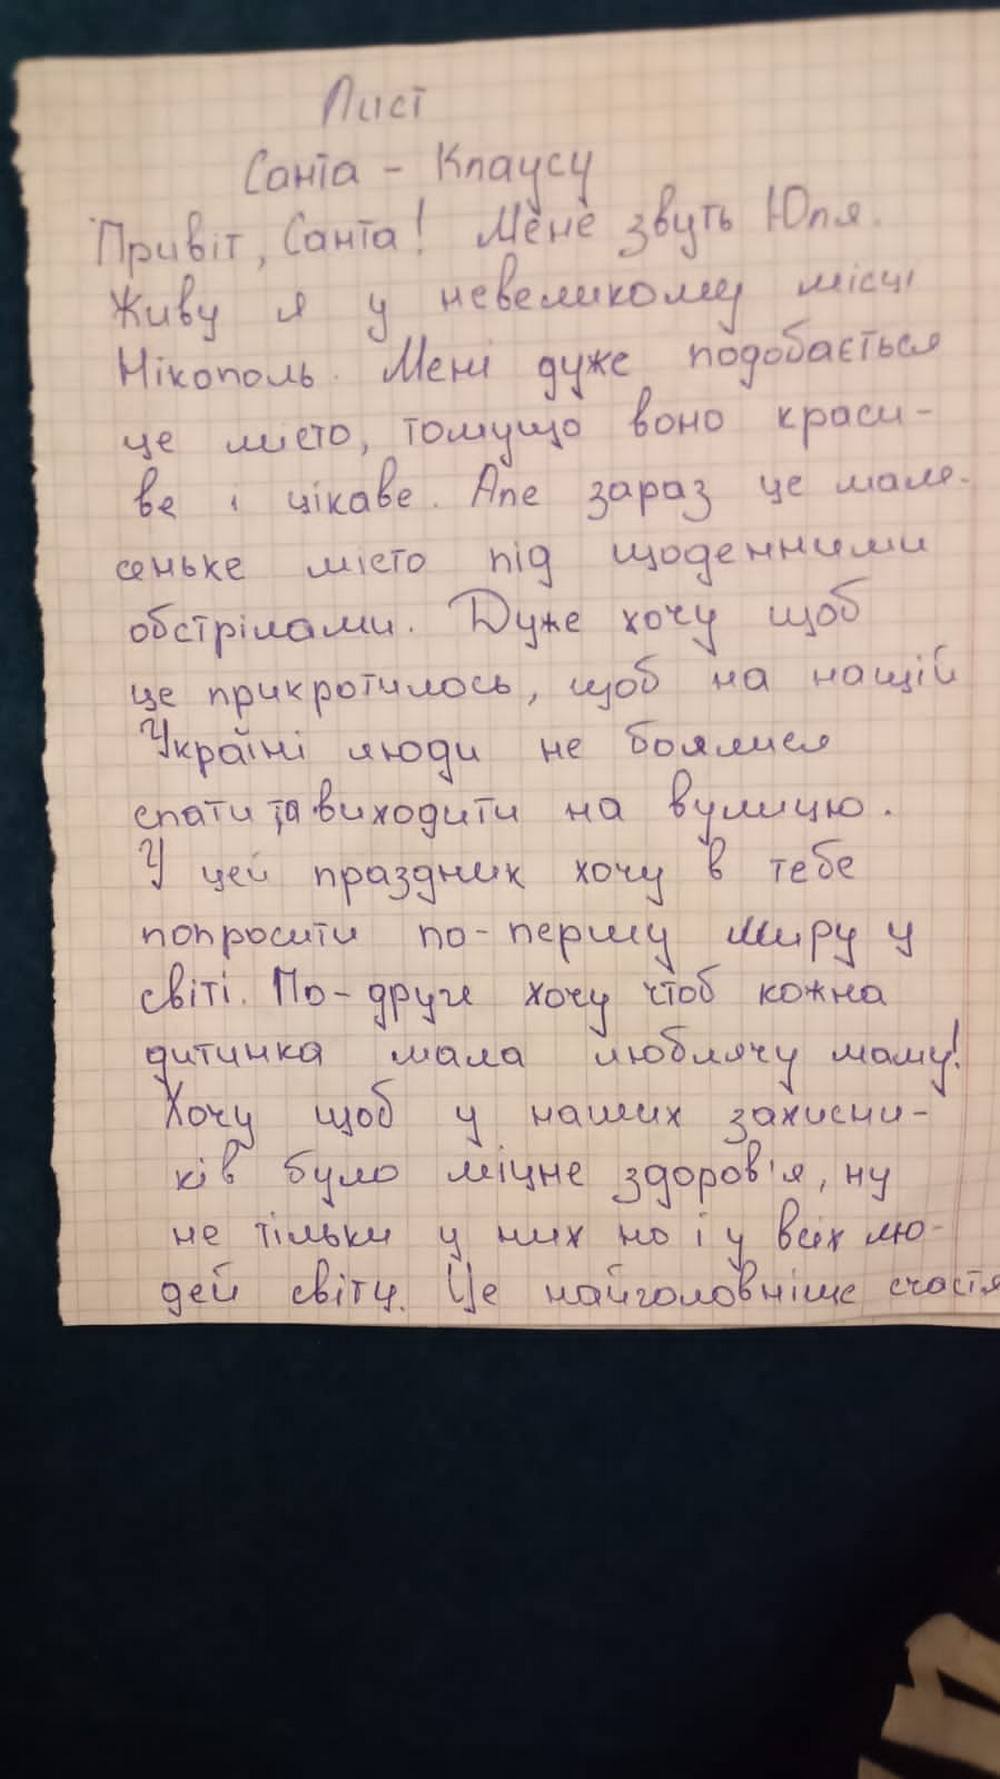 Лист
Санта - Клаусу
Привіт, Санта! Мене звуть Юля.
Живу я у невеликому місці
Нікополь. Мені дуже подобається
це місто, томущо воно краси-
ве і цікаве. Але зараз це мале-
сеньке місто під щоденними
обстрілами. Дуже хочу щоб
це прикротилось, щоб на нащій
Україні люди не боялися
спати та виходити на вулицю.
У цей праздник хочу в тебе
попросити по-першу миру у
світі. По-друге хочу чтоб кожна
дитинка мала люблячу маму!
Хочу щоб у наших захисни-
ків було міцне здоров'я, ну
не тільки у них но і у всіх лю-
дей світу. Це найголовніше счастя